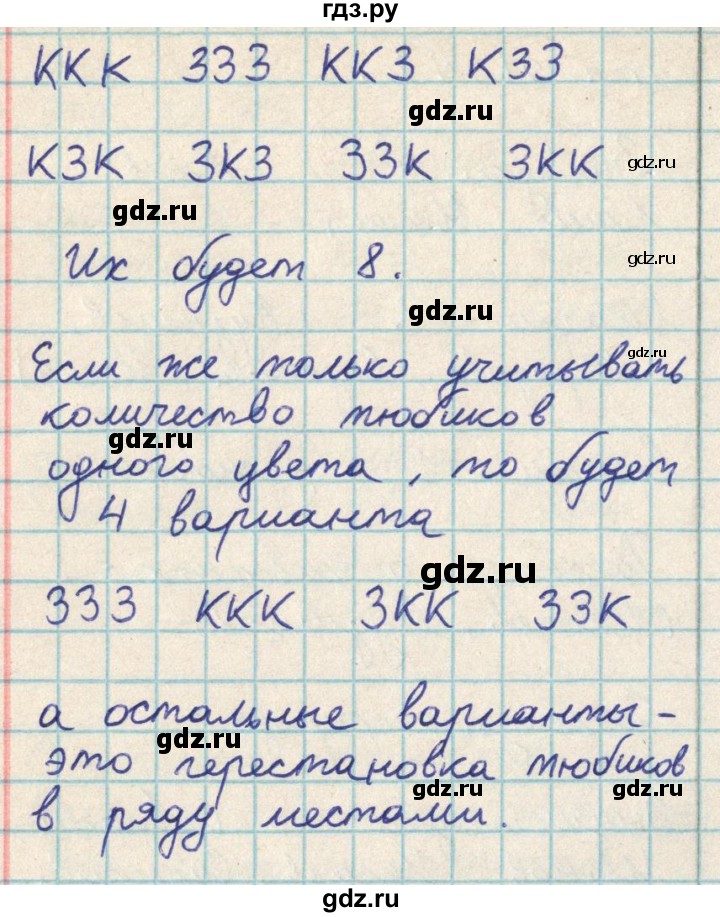 гдз.ру
ККК ЗЗЗ ККЗ КЗЗ
gdz.ru
КЗК ЗКЗ ЗЗК ЗКК gdz.ru
gdz.ru
Их будет 8. gdz.ru
gdz.ru
Если же только учитывать gdz.ru
количество тюбиков
gdz.ru
одного цвета, то будет
4 варианта
gdz.ru
ЗЗЗ ККК ЗКК ЗЗК
а остальные варианты -
gdz.ru
это перестановка тюбиков
gdz.ru
в ряду местами.
gdz.ru